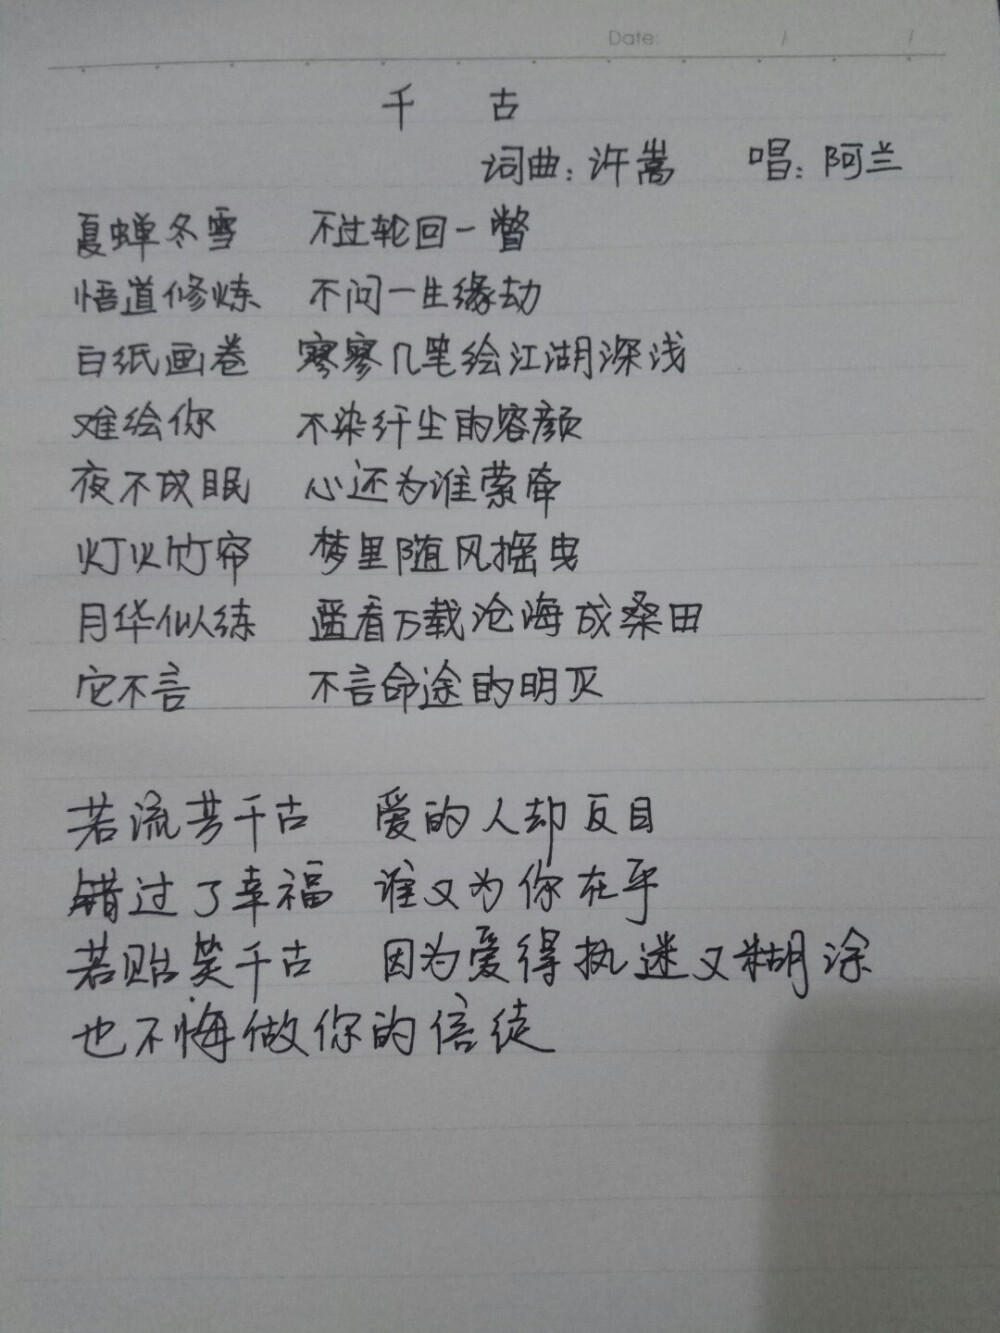 Date: / /
千 古
词曲：许嵩 唱：阿兰
夏蝉冬雪 不过轮回一瞥
悟道修炼 不问一生缘劫
白纸画卷 寥寥几笔绘江湖深浅
难绘你 不染纤尘的容颜
夜不成眠 心还为谁萦牵
灯火竹帘 梦里随风摇曳
月华似练 遥看万载沧海成桑田
它不言 不言命途的明灭
若流芳千古 爱的人却反目
错过了幸福 谁又为你在乎
若贻笑千古 因为爱得执迷又糊涂
也不悔做你的信徒